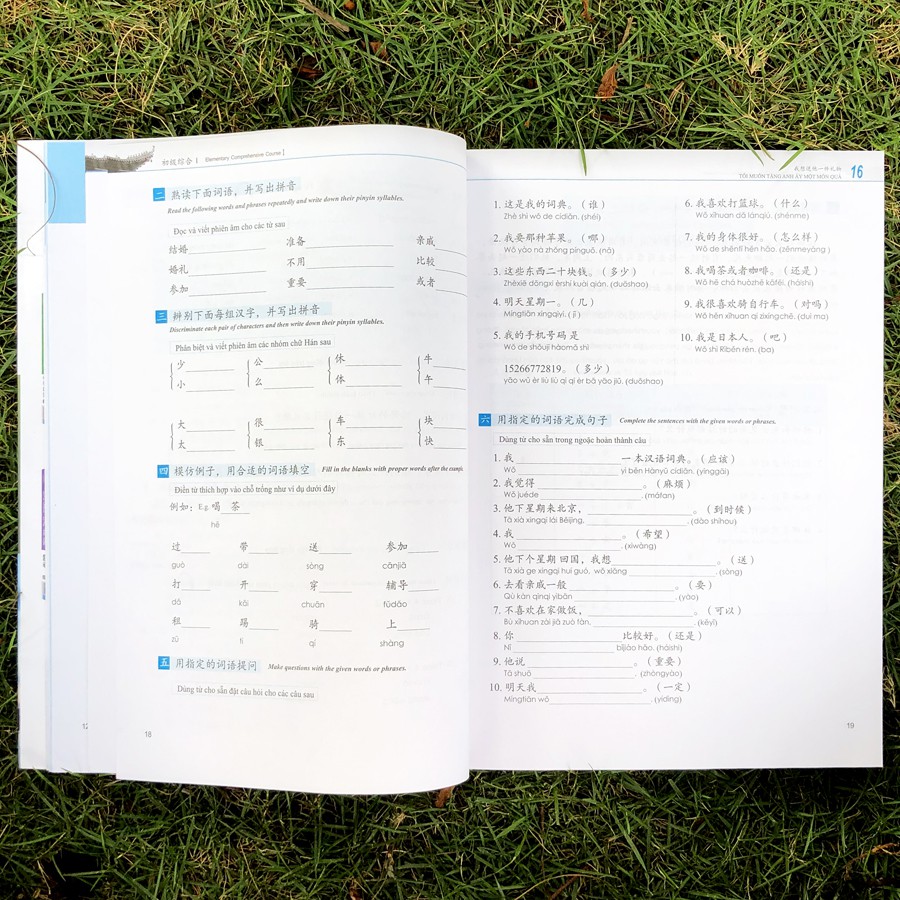 初级综合 I Elementary Comprehensive Course I
二 熟读下面词语，并写出拼音
Read the following words and phrases repeatedly and write down their pinyin syllables.
Đọc và viết phiên âm cho các từ sau
结婚 准备 亲戚
婚礼 不用 比较
参加 重要 或者
三 辨别下面每组汉字，并写出拼音
Discriminate each pair of characters and then write down their pinyin syllables.
Phân biệt và viết phiên âm các nhóm chữ Hán sau
少 公 休 牛
小 么 体 午
大 很 车 块
太 银 东 快
四 模仿例子，用合适的词语填空 Fill in the blanks with proper words after the example.
Điền từ thích hợp vào chỗ trống như ví dụ dưới đây
例如： E.g. 喝 茶
hē
过 带 送 参加
guò dài sòng cānjiā
打 开 穿 辅导
dǎ kāi chuān fǔdǎo
租 踢 骑 上
zū tī qí shàng
五 用指定的词语提问 Make questions with the given words or phrases.
Dùng từ cho sẵn đặt câu hỏi cho các câu sau
12
18
我想送他一件礼物
TÔI MUỐN TẶNG ANH ẤY MỘT MÓN QUÀ 16
1. 这是我的词典。（谁）
Zhè shì wǒ de cídiǎn. (shéi)
2. 我要那种苹果。（哪）
Wǒ yào nà zhǒng píngguǒ. (nǎ)
3. 这些东西二十块钱。（多少）
Zhèxiē dōngxi èrshí kuài qián. (duōshao)
4. 明天星期一。（几）
Míngtiān xīngqīyī. (jǐ)
5. 我的手机号码是
Wǒ de shǒujī hàomǎ shì
15266772819。（多少）
yāo wǔ èr liù liù qī qī èr bā yāo jiǔ. (duōshao)
6. 我喜欢打篮球。（什么）
Wǒ xǐhuan dǎ lánqiú. (shénme)
7. 我的身体很好。（怎么样）
Wǒ de shēntǐ hěn hǎo. (zěnmeyàng)
8. 我喝茶或者咖啡。（还是）
Wǒ hē chá huòzhě kāfēi. (háishi)
9. 我很喜欢骑自行车。（对吗）
Wǒ hěn xǐhuan qí zìxíngchē. (duì ma)
10. 我是日本人。（吧）
Wǒ shì Rìběn rén. (ba)
六 用指定的词语完成句子 Complete the sentences with the given words or phrases.
Dùng từ cho sẵn trong ngoặc hoàn thành câu
1. 我 一本汉语词典。（应该）
Wǒ yì běn Hànyǔ cídiǎn. (yīnggāi)
2. 我觉得 。（麻烦）
Wǒ juéde . (máfan)
3. 他下星期来北京， 。（到时候）
Tā xià xīngqī lái Běijīng, . (dào shíhou)
4. 我 。（希望）
Wǒ . (xīwàng)
5. 他下个星期 回国，我想 。（送）
Tā xià ge xīngqī huí guó, wǒ xiǎng . (sòng)
6. 去看亲戚一般 。（要）
Qù kàn qīnqi yìbān . (yào)
7. 不喜欢在家做饭， 。（可以）
Bù xǐhuan zài jiā zuò fàn, . (kěyǐ)
8. 你 比较好。（还是）
Nǐ bǐjiào hǎo. (háishi)
9. 他说 。（重要）
Tā shuō . (zhòngyào)
10. 明天我 。（一定）
Míngtiān wǒ . (yídìng)
19